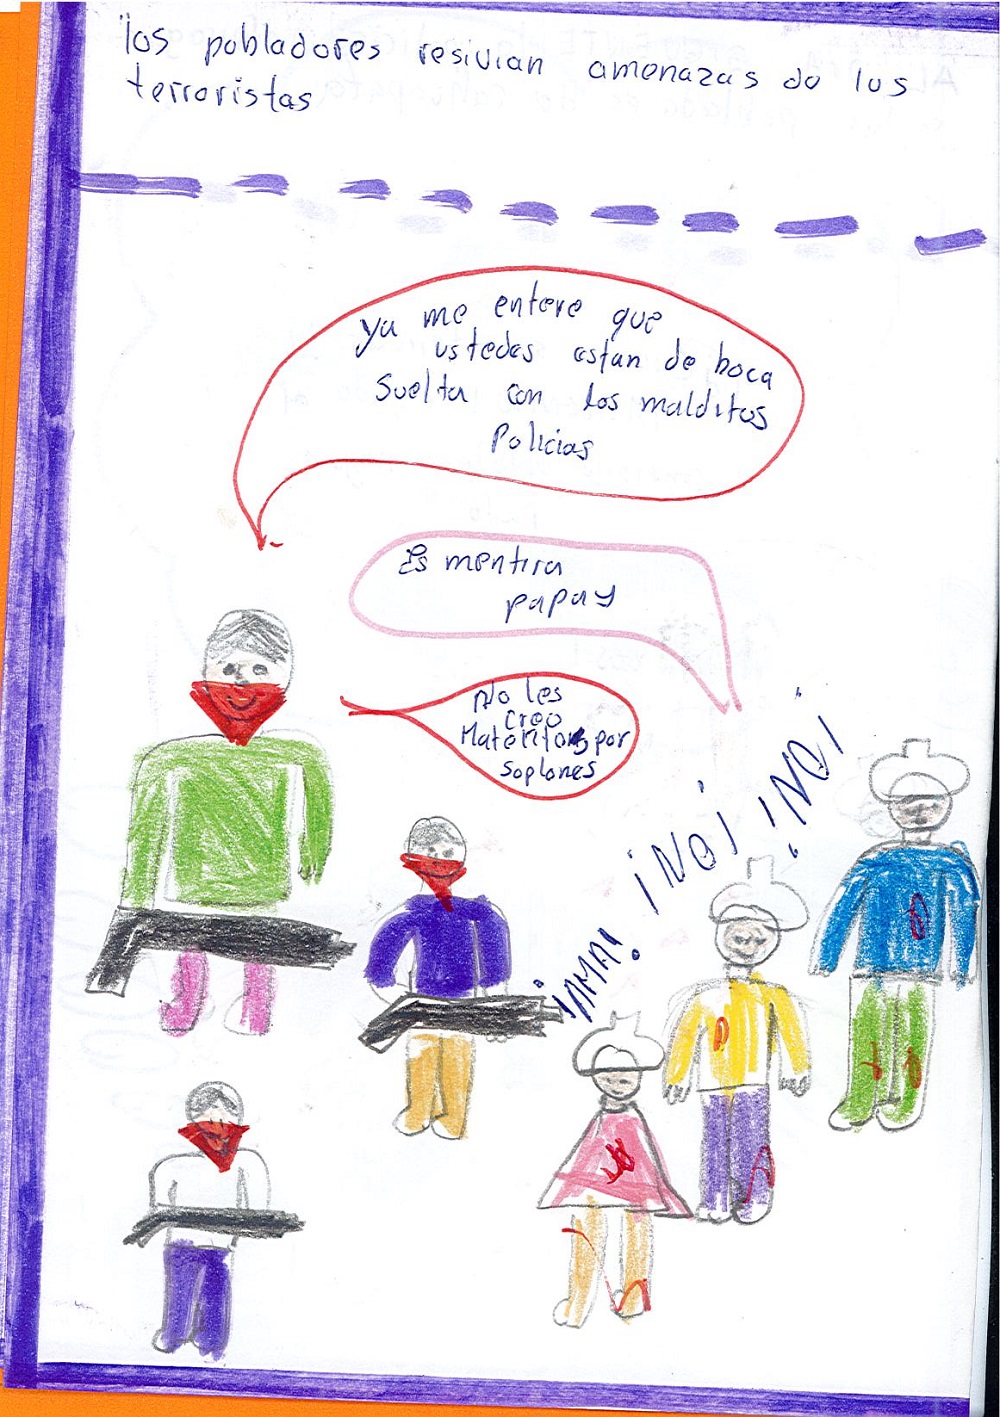 los pobladores resivian amenazas de los
terroristas
ya me entere que
ustedes estan de boca
suelta con los malditos
Policias
Es mentira
papay
No les
creo
Matenlos por
soplones
¡NO! ¡NO!
¡AMA!